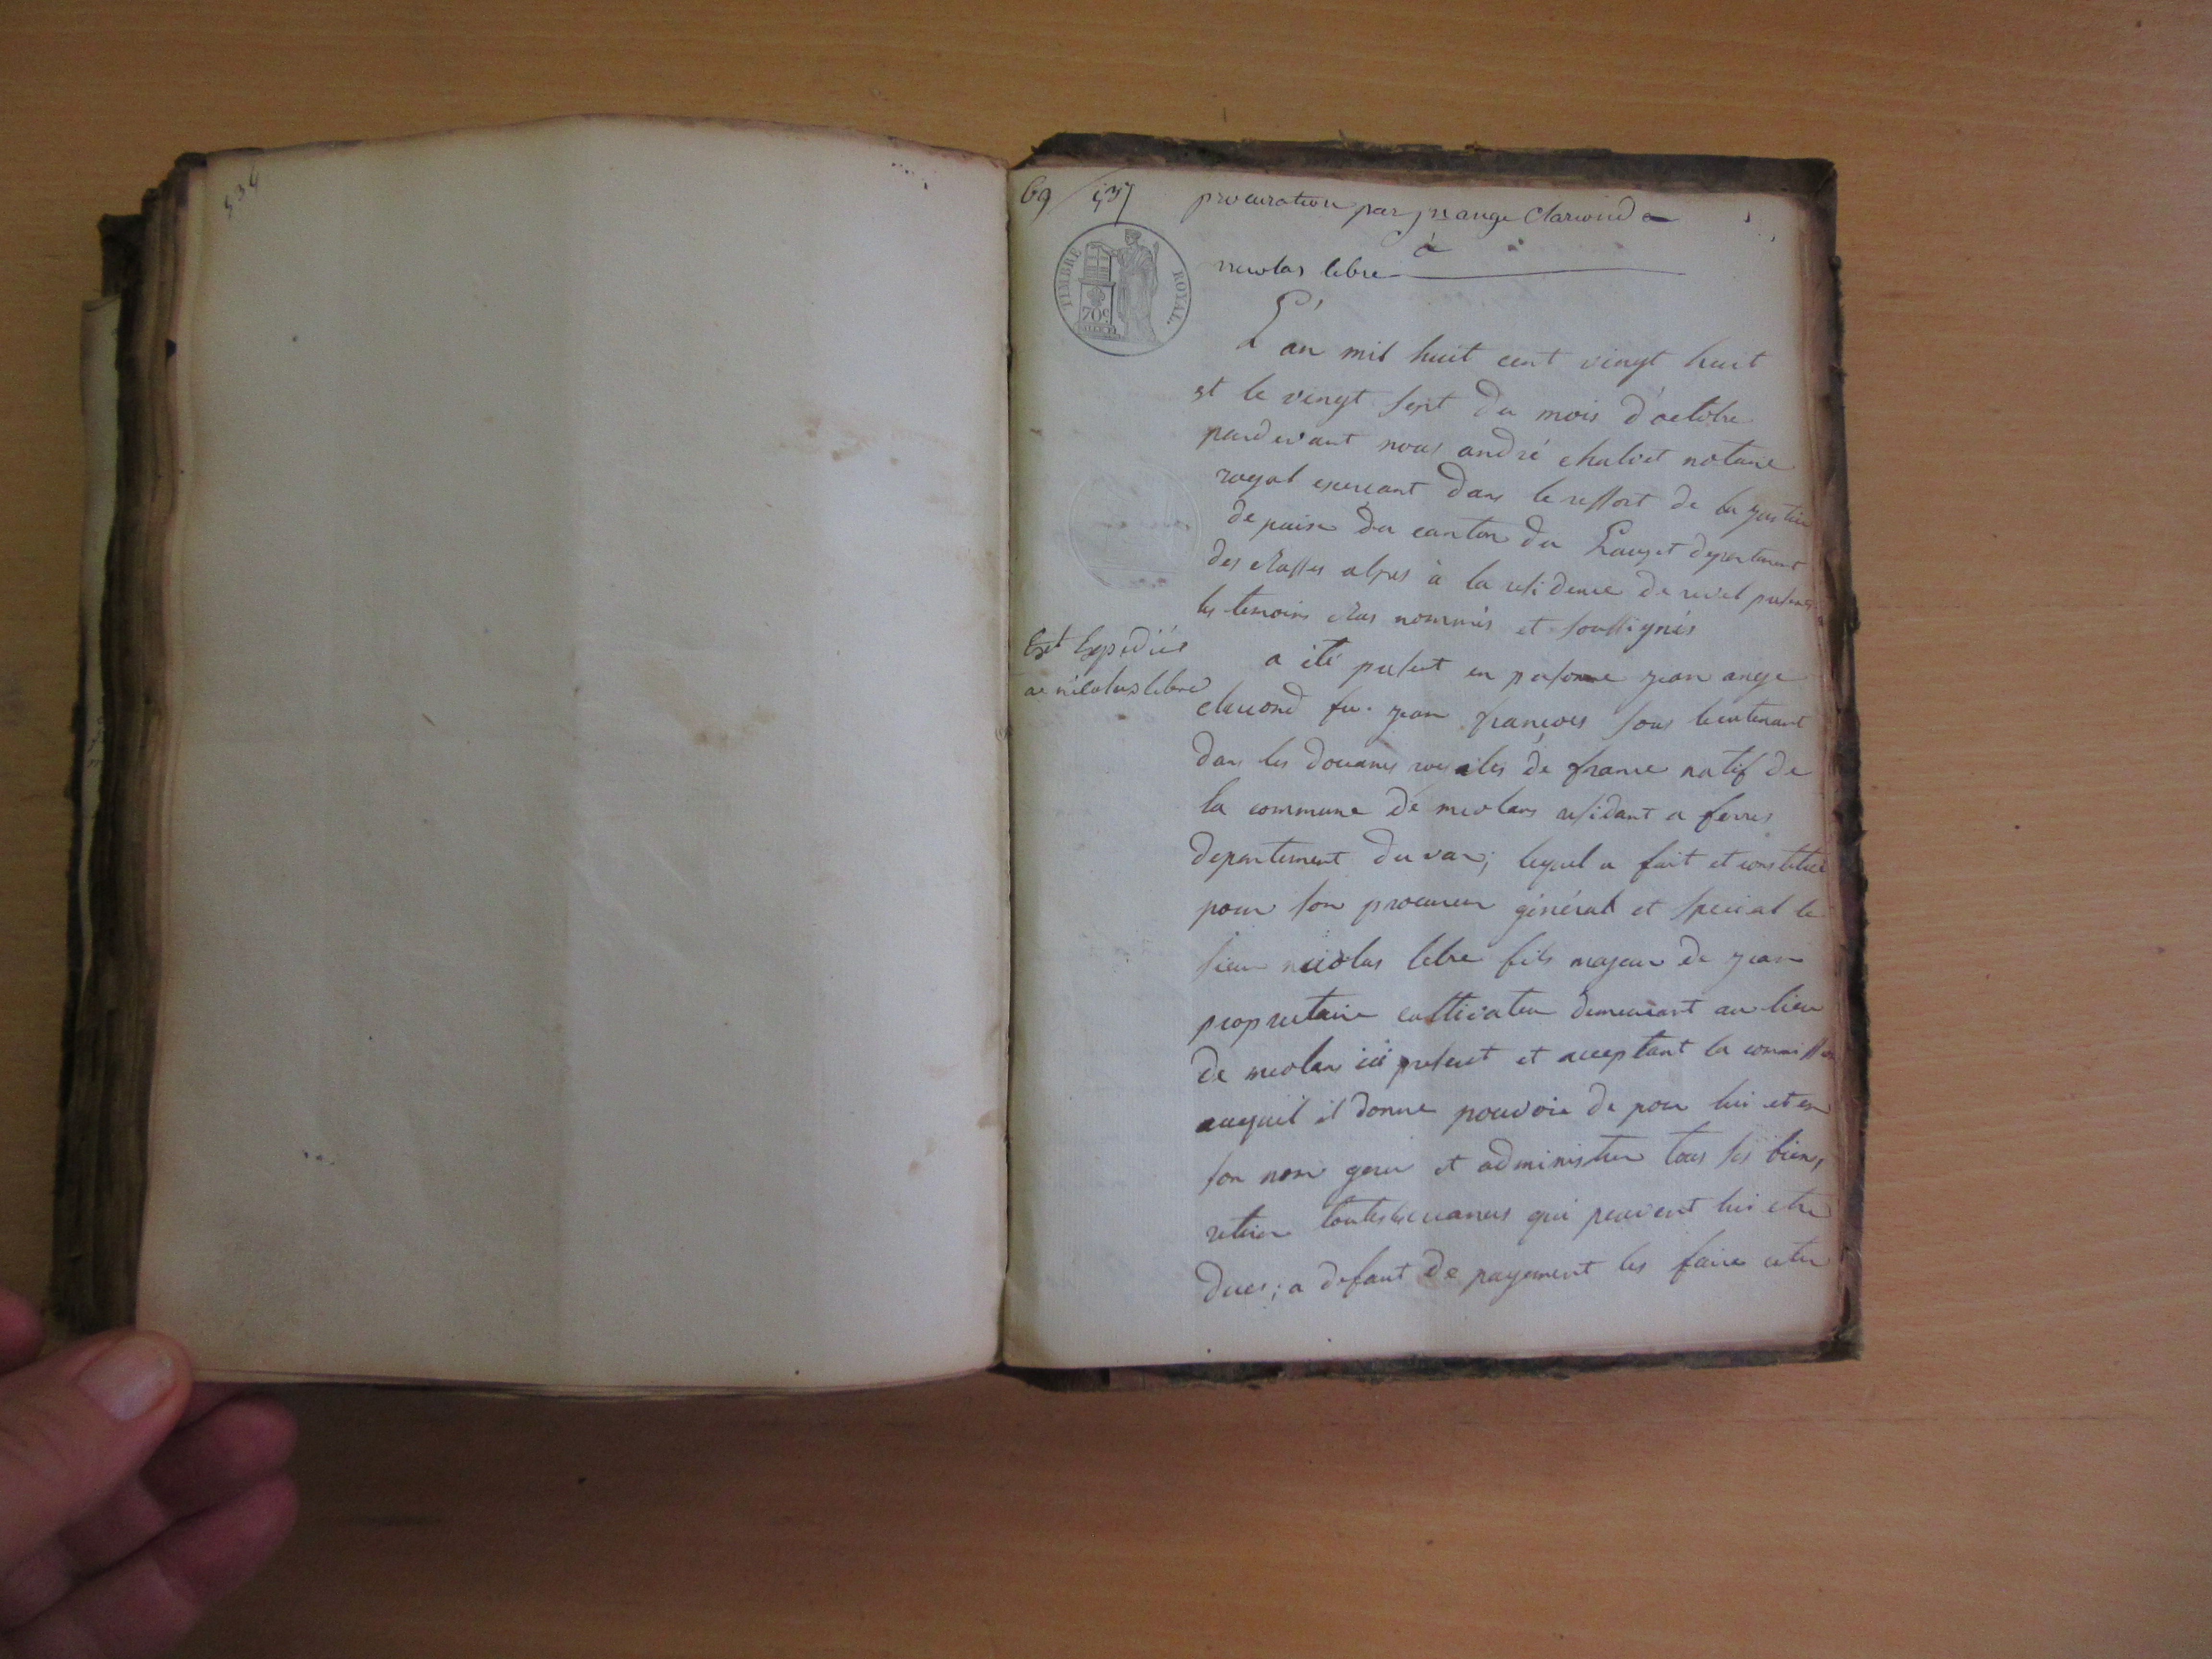 534
69 / 537
procuration par jn ange Clariond
à
nicolas lebre
TIMBRE ROYAL.
70c
L'an mil huit cent vingt huit
et le vingt sept du mois d'octobre
pardevant nous andré chaliet notaire
royal exercant dans le ressort de la justice
de paix du canton du Lauzet departement
des basses alpes à la residence de revel presents
les temoins bas nommés et soussignés
Ext Expedié
a nicolas lebre
a été present en personne jean ange
clariond fu jean françois sous lieutenant
dans les douanes royales de france natif de
la commune de meolans residant a ferres
departement du var; lequel a fait et constitué
pour son procureur général et special le
sieur nicolas lebre fils majeur de jean
proprietaire cultivateur demeurant au lieu
de meolans ici present et acceptant la commission
auquel il donne pouvoir de pour lui et en
son nom gerer et administrer tous ses biens,
retirer toutes les creances qui peuvent lui etre
dues; a defaut de payement les faire citer